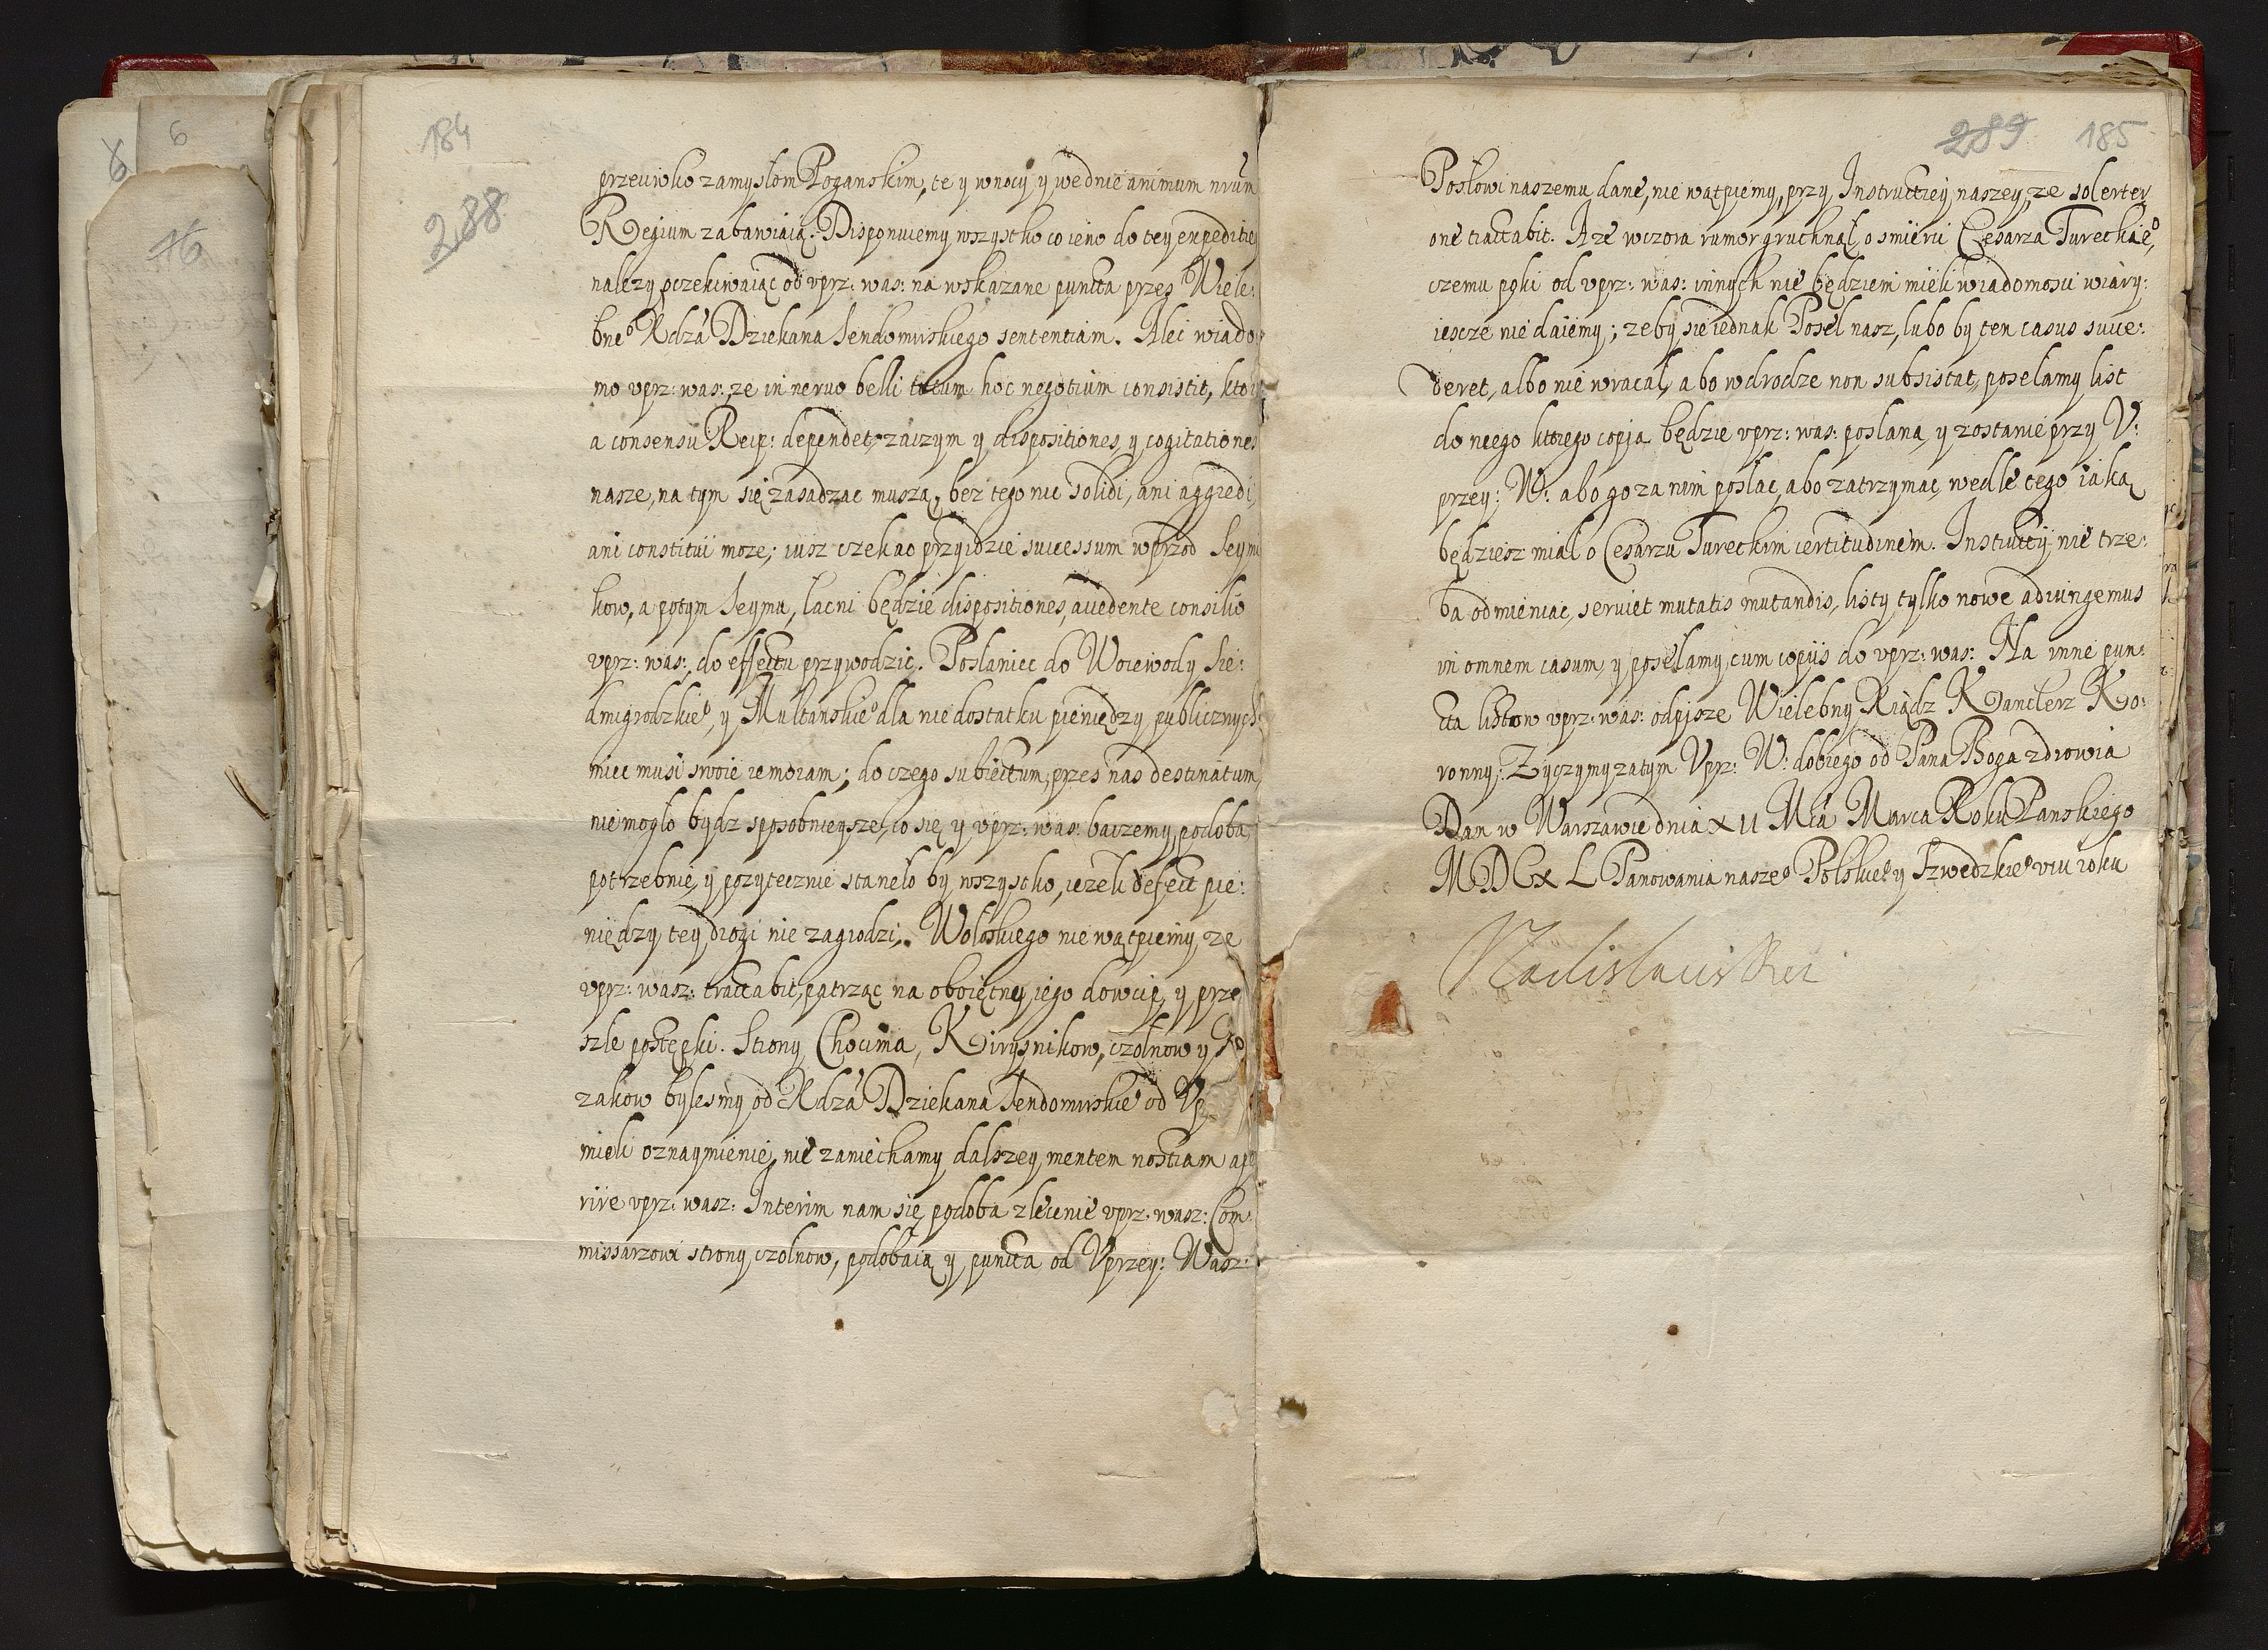 184
288
przeciwko zamysłom Poganskim, te y wnocy y wednie animum nrum
Regium zabawiaią. Disponuiemy wszystko co ieno do tey expeditiey
nalezy oczekiwaiąc od vprz: was: na wskazane puncta przes Wiele:
bneº Xdza Dziekana Sendomirskiego sententiam. Aleć wiado
mo vprz: was: ze in neruo belli totum hoc negotium consistit, ktory
a consensu Reip: dependet, zaczym y dispositiones, y cogitationes
nasze, na tym się zasadzac muszą, bez tego nic solidi, ani aggredi,
ani constitui moze; iusz czekac przyidzie successum wprzod Seymi
kow, a potym Seymu, łacni będzie dispositiones, accedente consilio
vprz: was:, do effectu przywodzić. Poslaniec do Woiewody Sie:
dmigrodzkieº, y Multanskieº dla niedostatku pieniędzy publicznych
miec musi swoię remoram; do czego subiectum, przes nas destinatum
niemogło bydz sposobnieysze, co się y vprz: was: baczemy, podoba,
potrzebnie, y pozytecznie stanęło by wszystko, iezeli defect pie:
niędzy tey drogi nie zagrodzi. Wołoskiego nie wątpiemy, ze
vprz: wasz: tractabit, patrząc na oboiętny iego dowcip, y prze
szłe postępki. Strony Chocima, Kirysnikow, czołnow y Ko
zakow bylesmy od Xdza Dziekana Sendomirskieº od Vp
mieli oznaymienie, nie zaniechamy dalszey mentem nostram ape
rire vprz: wasz: Interim nam się podoba zlecenie vprz: wasz: Com
missarzowi strony czołnow, podobaią y puncta od Vprzey: Wasz:
289 185
Posłowi naszemu dane, nie wątpiemy, przy Instructiey naszey, ze solerter
one tractabit. A ze wczora rumor gruchnął, o smierci Cesarza Tureckieº,
czemu poki od vprz: was: innych nie będziem mieli wiadomosci wiary:
iescze nie daiemy; zeby sie iednak Poseł nasz, lubo by ten casus succe:
deret, albo nie wracał, abo wdrodze non subsistat, posełamy list
do niego ktorego copja będzie vprz: was: posłana, y zostanie przy V:
przey: W: abo go za nim posłac, abo zatrzymac, wedle tego iaką
będziesz miał o Cesarzu Tureckim certitudinem. Instructij nie trze:
ba odmieniac, seruiet mutatis mutandis, listy tylko nowe adiungemus
in omnem casum, y posełamy cum copijs do vprz: was: Na inne pun:
cta listow vprz: was: odpisze Wielebny Xiądz Kanclerz Ko:
ronny. Zyczymy zatym Vprz: W: dobrego od Pana Boga zdrowia
Dan w Warszawie dnia XII Mca Marca Roku Panskiego
MDCXL Panowania naszeº Polskieº y Szwedzkieº VIII roku
Vladislaus Rex
6
6
76